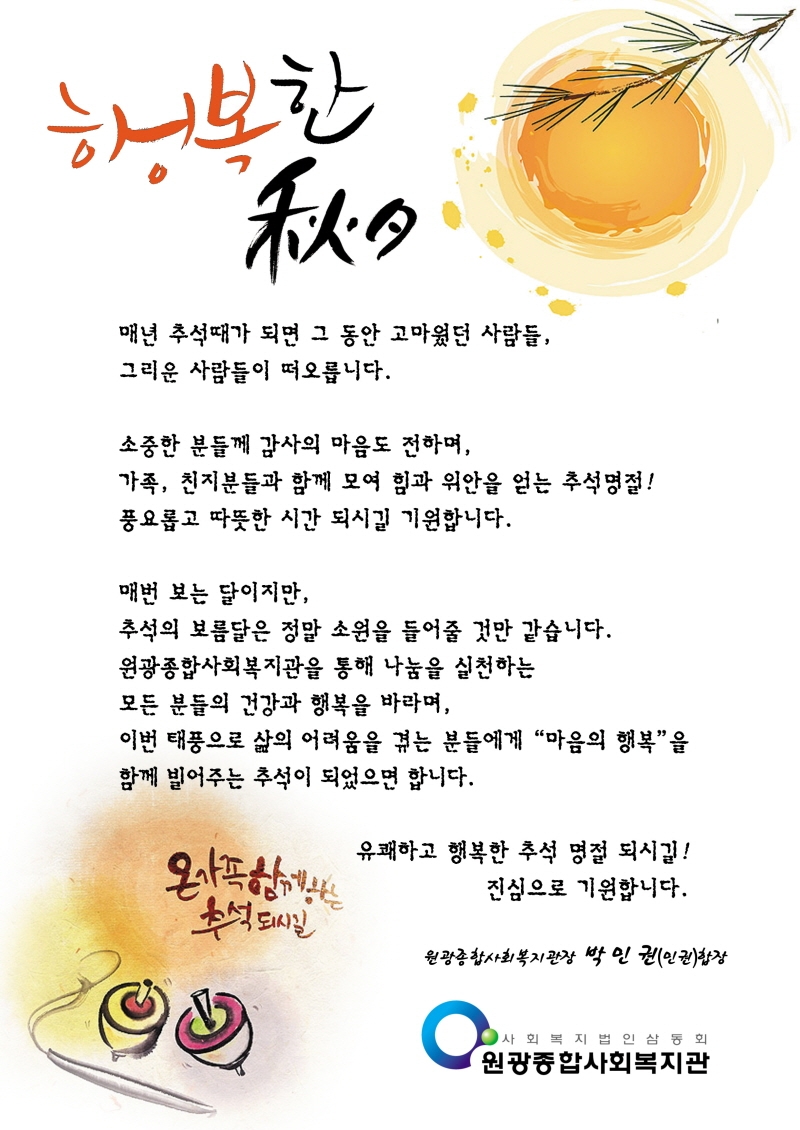 행복한
秋夕
매년 추석때가 되면 그 동안 고마웠던 사람들,
그리운 사람들이 떠오릅니다.
소중한 분들께 감사의 마음도 전하며,
가족, 친지분들과 함께 모여 힘과 위안을 얻는 추석명절!
풍요롭고 따뜻한 시간 되시길 기원합니다.
매번 보는 달이지만,
추석의 보름달은 정말 소원을 들어줄 것만 같습니다.
원광종합사회복지관을 통해 나눔을 실천하는
모든 분들의 건강과 행복을 바라며,
이번 태풍으로 삶의 어려움을 겪는 분들에게 “마음의 행복”을
함께 빌어주는 추석이 되었으면 합니다.
유쾌하고 행복한 추석 명절 되시길!
진심으로 기원합니다.
온가족 함께
추석 되시길
원광종합사회복지관장 박 인 권(인권)합장
사회복지법인삼동회
원광종합사회복지관